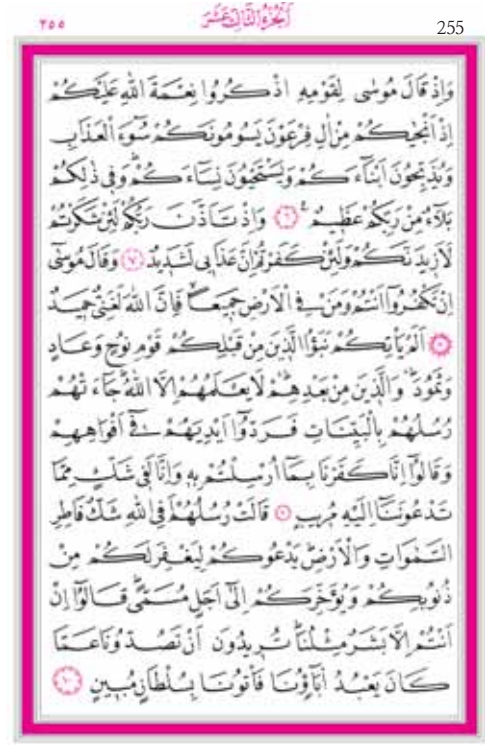 ٢٥٥ اَلْجُزْءُ الثَّالِثَ عَشَرَ 255
وَاِذْ قَالَ مُوسٰى لِقَوْمِهِ اذْكُرُوا نِعْمَةَ اللّٰهِ عَلَيْكُمْ
اِذْ اَنْجٰيكُمْ مِنْ اٰلِ فِرْعَوْنَ يَسُومُونَكُمْ سُٓوءَ الْعَذَابِ
وَيُذَبِّحُونَ اَبْنَٓاءَكُمْ وَيَسْتَحْيُونَ نِسَٓاءَكُمْ وَفٖى ذٰلِكُمْ
بَلَٓاءٌ مِنْ رَبِّكُمْ عَظٖيمٌ ﴿٦﴾ وَاِذْ تَاَذَّنَ رَبُّكُمْ لَئِنْ شَكَرْتُمْ
لَاَزٖيدَنَّكُمْ وَلَئِنْ كَفَرْتُمْ اِنَّ عَذَابٖى لَشَدٖيدٌ ﴿٧﴾ وَقَالَ مُوسٰٓى
اِنْ تَكْفُرُٓوا اَنْتُمْ وَمَنْ فِى الْاَرْضِ جَمٖيعًا فَاِنَّ اللّٰهَ لَغَنِىٌّ حَمٖيدٌ
﴿٨﴾ اَلَمْ يَاْتِكُمْ نَبَؤُا الَّذٖينَ مِنْ قَبْلِكُمْ قَوْمِ نُوحٍ وَعَادٍ
وَثَمُودَ وَالَّذٖينَ مِنْ بَعْدِهِمْ لَا يَعْلَمُهُمْ اِلَّا اللّٰهُ جَٓاءَتْهُمْ
رُسُلُهُمْ بِالْبَيِّنَاتِ فَرَدُّٓوا اَيْدِيَهُمْ فٖٓى اَفْوَاهِهِمْ
وَقَالُٓوا اِنَّا كَفَرْنَا بِمَٓا اُرْسِلْتُمْ بِهٖ وَاِنَّا لَفٖى شَكٍّ مِمَّا
تَدْعُونَنَٓا اِلَيْهِ مُرٖيبٍ ﴿٩﴾ قَالَتْ رُسُلُهُمْ اَفِى اللّٰهِ شَكٌّ فَاطِرِ
السَّمٰوَاتِ وَالْاَرْضِ يَدْعُوكُمْ لِيَغْفِرَ لَكُمْ مِنْ
ذُنُوبِكُمْ وَيُؤَخِّرَكُمْ اِلٰٓى اَجَلٍ مُسَمًّى قَالُٓوا اِنْ
اَنْتُمْ اِلَّا بَشَرٌ مِثْلُنَا تُرٖيدُونَ اَنْ تَصُدُّونَا عَمَّا
كَانَ يَعْبُدُ اٰبَٓاؤُنَا فَاْتُونَا بِسُلْطَانٍ مُبٖينٍ ﴿١٠﴾